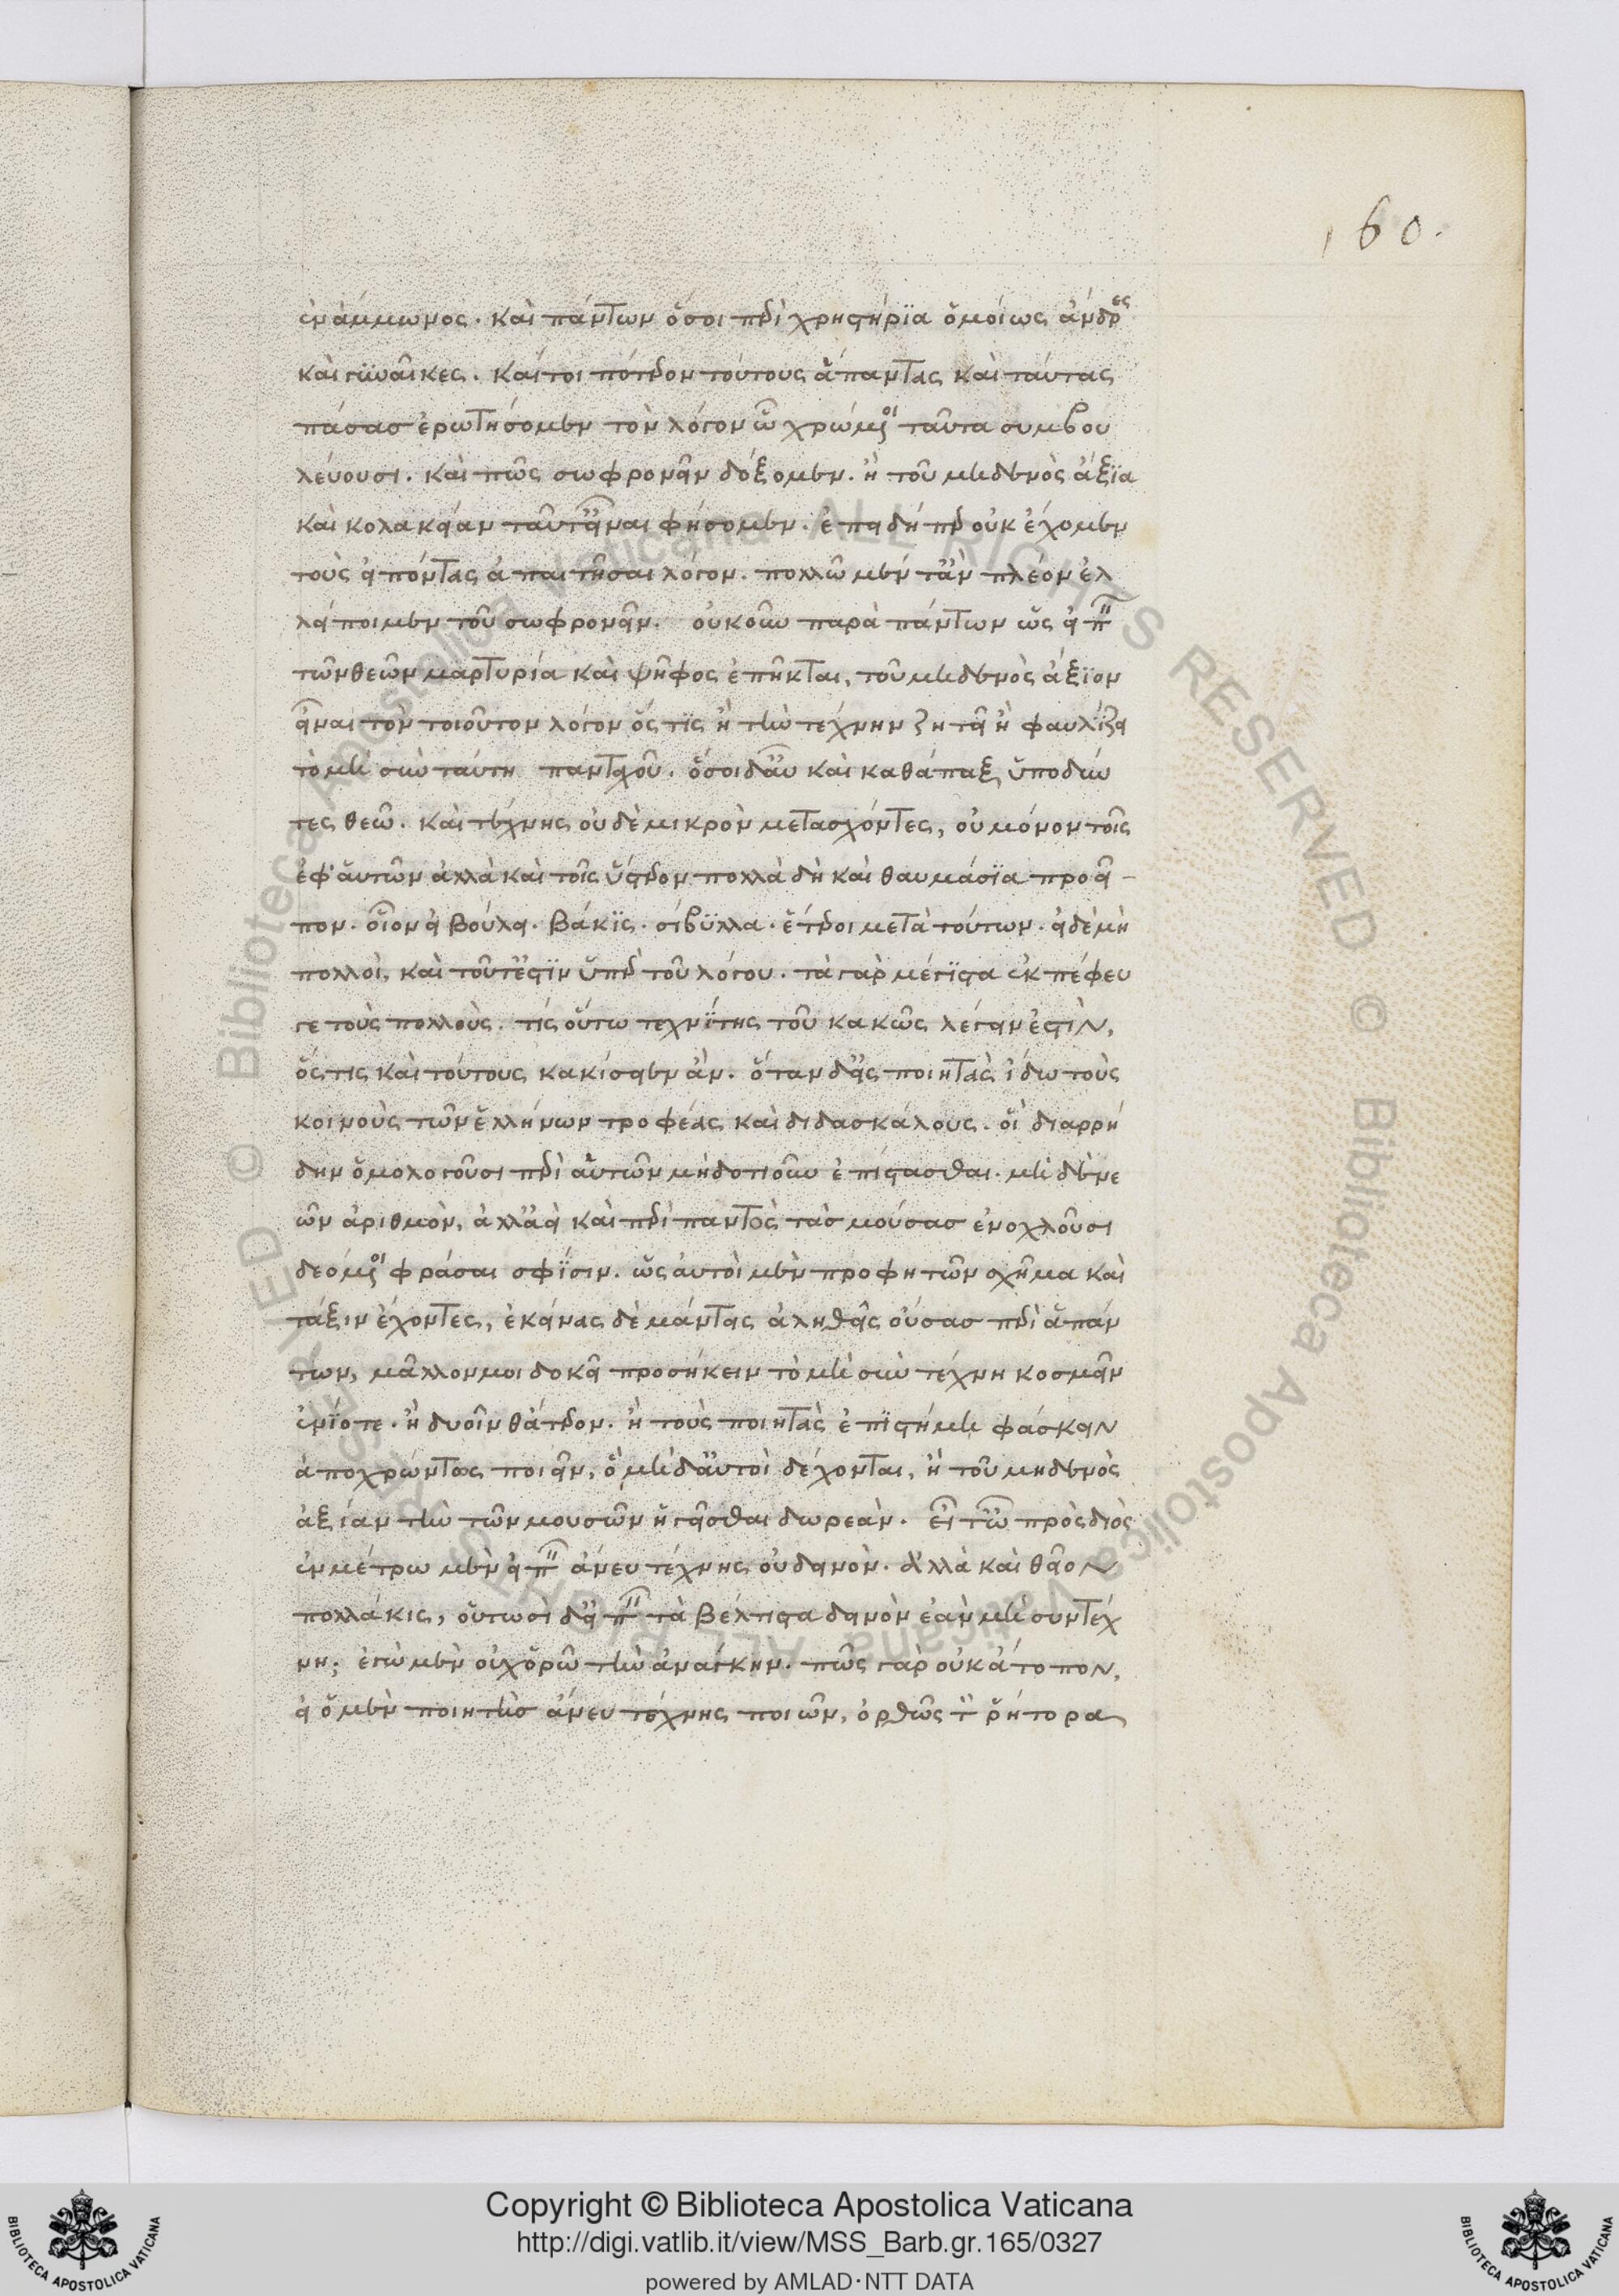 160.
ἐν ἄμμωνος. καὶ πάντων ὅσοι περὶ χρηστήρϊα ὁμοίως ἄνδρες
καὶ γϋναῖκες. καίτοι πότερον τούτους ἅπαντας καὶ ταύτας
πάσασ ἐρωτήσομεν τὸν λόγον ὧ χρώμενοι ταῦτα συμβου
λεύουσι. καὶ πῶς σωφρονεῖν δόξομεν. ἢ τοῦ μηδενὸς ἄξϊα
καὶ κολακείαν ταῦτ εἶναι φήσομεν. ἐπειδήπερ οὐκ ἔχομεν
τοὺς εἰπόντας ἀπαιτῆσαι λόγον. πολλῶ μέν τἂν πλέον ἐλ
λείποιμεν τοῦ σωφρονεῖν. οὐκοῦν παρὰ πάντων ὡς εἰπεῖν
τῶν θεῶν μαρτυρία καὶ ψῆφος ἐπῆκται, τοῦ μηδενὸς ἄξϊον
εἶναι τὸν τοιοῦτον λόγον ὅς τϊς ἢ τὴν τέχνην ζητεῖ ἢ φαυλίζει
τὸ μὴ σὺν ταύτη πανταχοῦ. ὅσοι δ αὖ καὶ καθάπαξ ὑποδύν
τες θεῶ. καὶ τέχνης οὐδὲ μικρὸν μετασχόντες, οὐ μόνον τοῖς
ἐφ' αὑτῶν ἀλλὰ καὶ τοῖς ὕστερον πολλὰ δὴ καὶ θαυμάσϊα προεῖ-
πον. οἷον εἰ βούλει. βάκϊς. σίβϋλλα. ἕτεροι μετὰ τούτων. εἰ δὲ μὴ
πολλοὶ, καὶ τοῦτ ἔστϊν ὑπὲρ τοῦ λόγου. τὰ γὰρ μέγϊστα ἐκπέφευ
γε τοὺς πολλοὺς. τίς οὕτω τεχνΐτης τοῦ κακῶς λέγειν ἐστὶν,
ὅς τις καὶ τούτους κακίσειεν ἄν. ὅταν δ εἰς ποιητὰς ἴδω τοὺς
κοινοὺς τῶν ἑλλήνων τροφέας καὶ διδασκάλους. οἳ διαρρή
δην ὁμολογοῦσι περὶ αὑτῶν μηδοτιοῦν ἐπίστασθαι. μὴ δὲ νε
ῶν ἀριθμὸν, ἀλλ ἀεὶ καὶ περὶ παντὸς τὰσ μούσασ ἐνοχλοῦσι
δεόμενοι φράσαι σφΐσιν. ὡς αὐτοὶ μὲν προφητῶν σχῆμα καὶ
τάξιν ἔχοντες, ἐκείνας δὲ μάντας ἀληθεῖς οὔσασ περὶ ἁπάν
των, μᾶλλον μοι δοκεῖ προσήκειν τὸ μὴ σὺν τέχνη κοσμεῖν
ἐνΐοτε. ἢ δυοῖν θάτερον. ἢ τοὺς ποιητὰς ἐπϊστήμη φάσκειν
ἀποχρώντως ποιεῖν, ὃ μὴ δ αὐτοὶ δέχονται, ἢ τοῦ μηδενὸς
ἀξίαν τὴν τῶν μουσῶν ἡγεῖσθαι δωρεὰν. εἶτ ὦ πρὸς διὸς
ἐν μέτρω μὲν εἰπεῖν ἄνευ τέχνης οὐ δεινὸν. ἀλλὰ καὶ θεῖον
πολλάκις, οὑτωσὶ δ εἰπεῖν τὰ βέλτιστα δεινὸν ἐὰν μὴ συν τέχ
νη; ἐγὼ μὲν οὐχ ὁρῶ τὴν ἀνάγκην. πῶς γὰρ οὐκ ἄτοπον,
εἰ ὁ μὲν ποιητὴσ ἄνευ τέχνης ποιῶν, ὀρθῶς τὸν ῥήτορα
Copyright © Biblioteca Apostolica Vaticana
http://digi.vatlib.it/view/MSS_Barb.gr.165/0327
powered by AMLAD·NTT DATA